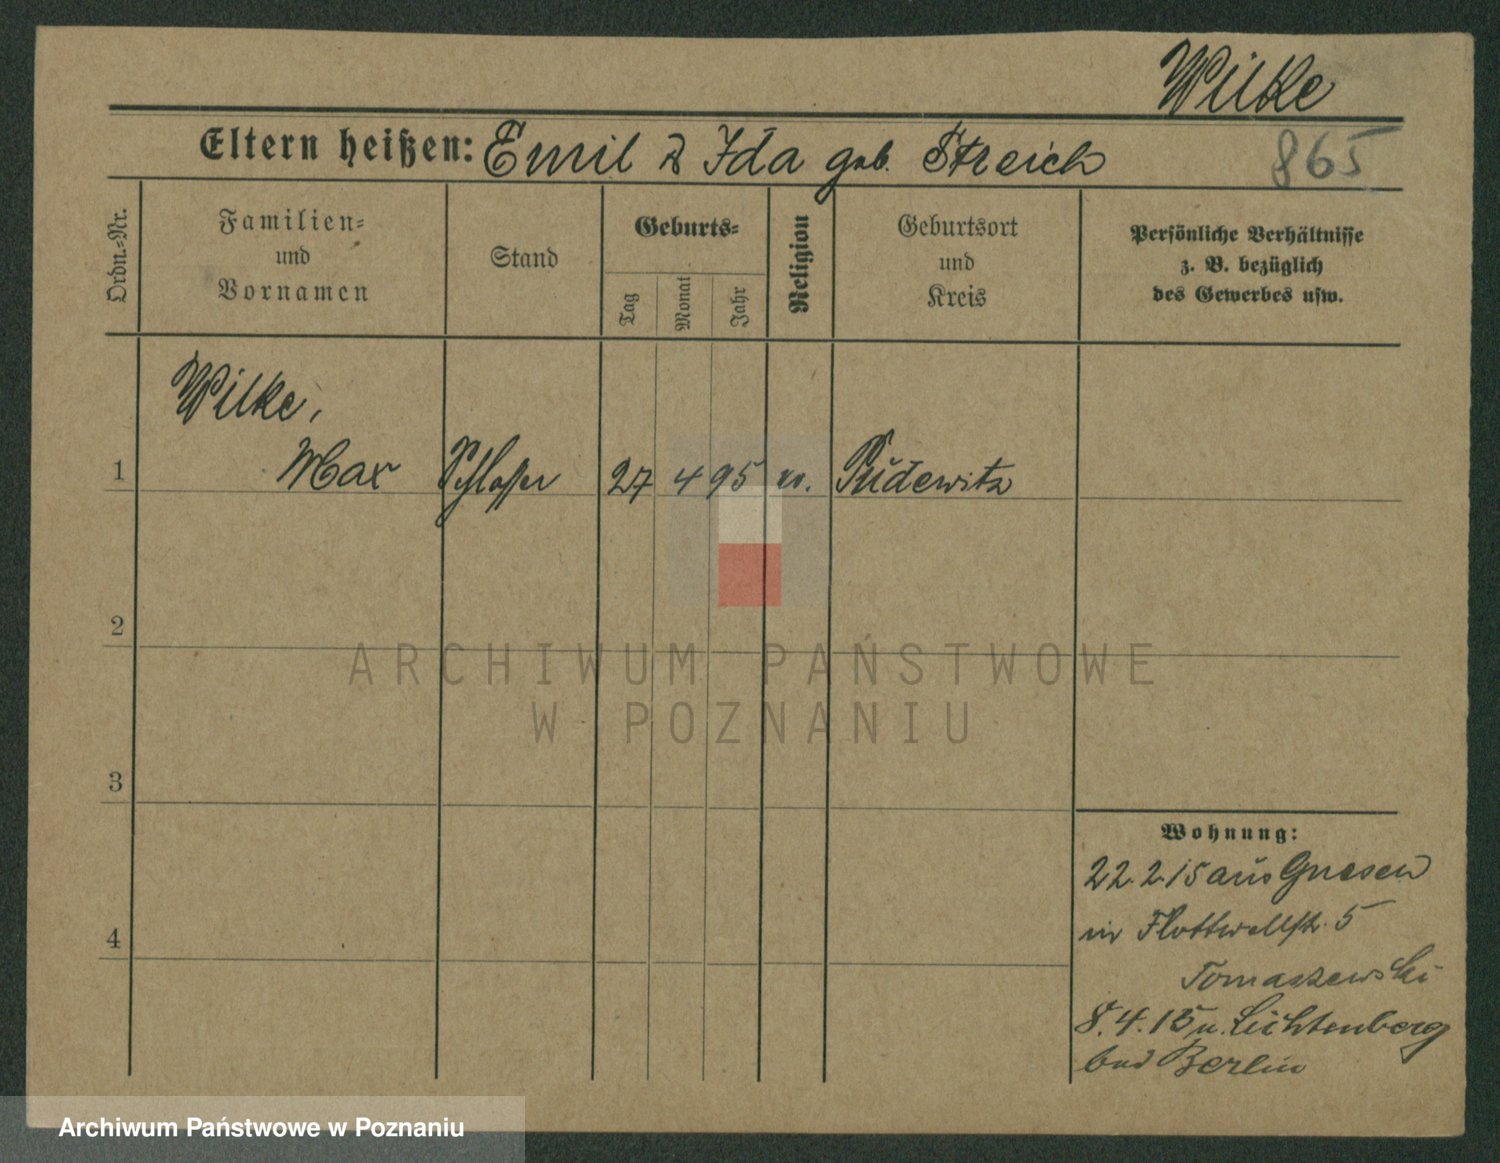 Wilke
Eltern heißen: Emil & Ida geb. Streich
865
Ordn.=Nr.
Familien=
und
Vornamen
Stand
Geburts=
Tag
Monat
Jahr
Religion
Geburtsort
und
Kreis
Persönliche Verhältnisse
z. B. bezüglich
des Gewerbes usw.
Wilke,
1 Max Schlosser 27 4 95 ev. Pudewitz
2
3
4
Wohnung:
22.2.15 aus Gnesen
in Flottwellstr. 5
Tomaszewski
8.4.15 n. Lichtenberg
Berlin
ARCHIWUM PAŃSTWOWE
W POZNANIU
Archiwum Państwowe w Poznaniu